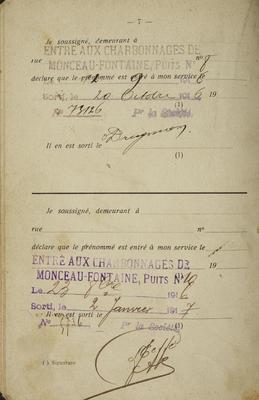 — 7 —
Je soussigné, demeurant à
ENTRÉ AUX CHARBONNAGES DE
rue nº 8
MONCEAU-FONTAINE, PUITS Nº
déclare que le prénommé est entré à mon service le
Sorti, le 20 Octobre 1916
(1)
Nº 73126 Pr la Société
Il en est sorti le
(1)
Je soussigné, demeurant à
rue nº
déclare que le prénommé est entré à mon service le
ENTRÉ AUX CHARBONNAGES DE 19
MONCEAU-FONTAINE, PUITS Nº 10
Le 23 8bre 1916
Sorti, le 2 Janvier 1917
Il en est sorti le
Nº Pr la Société
(1)
(1) Signature